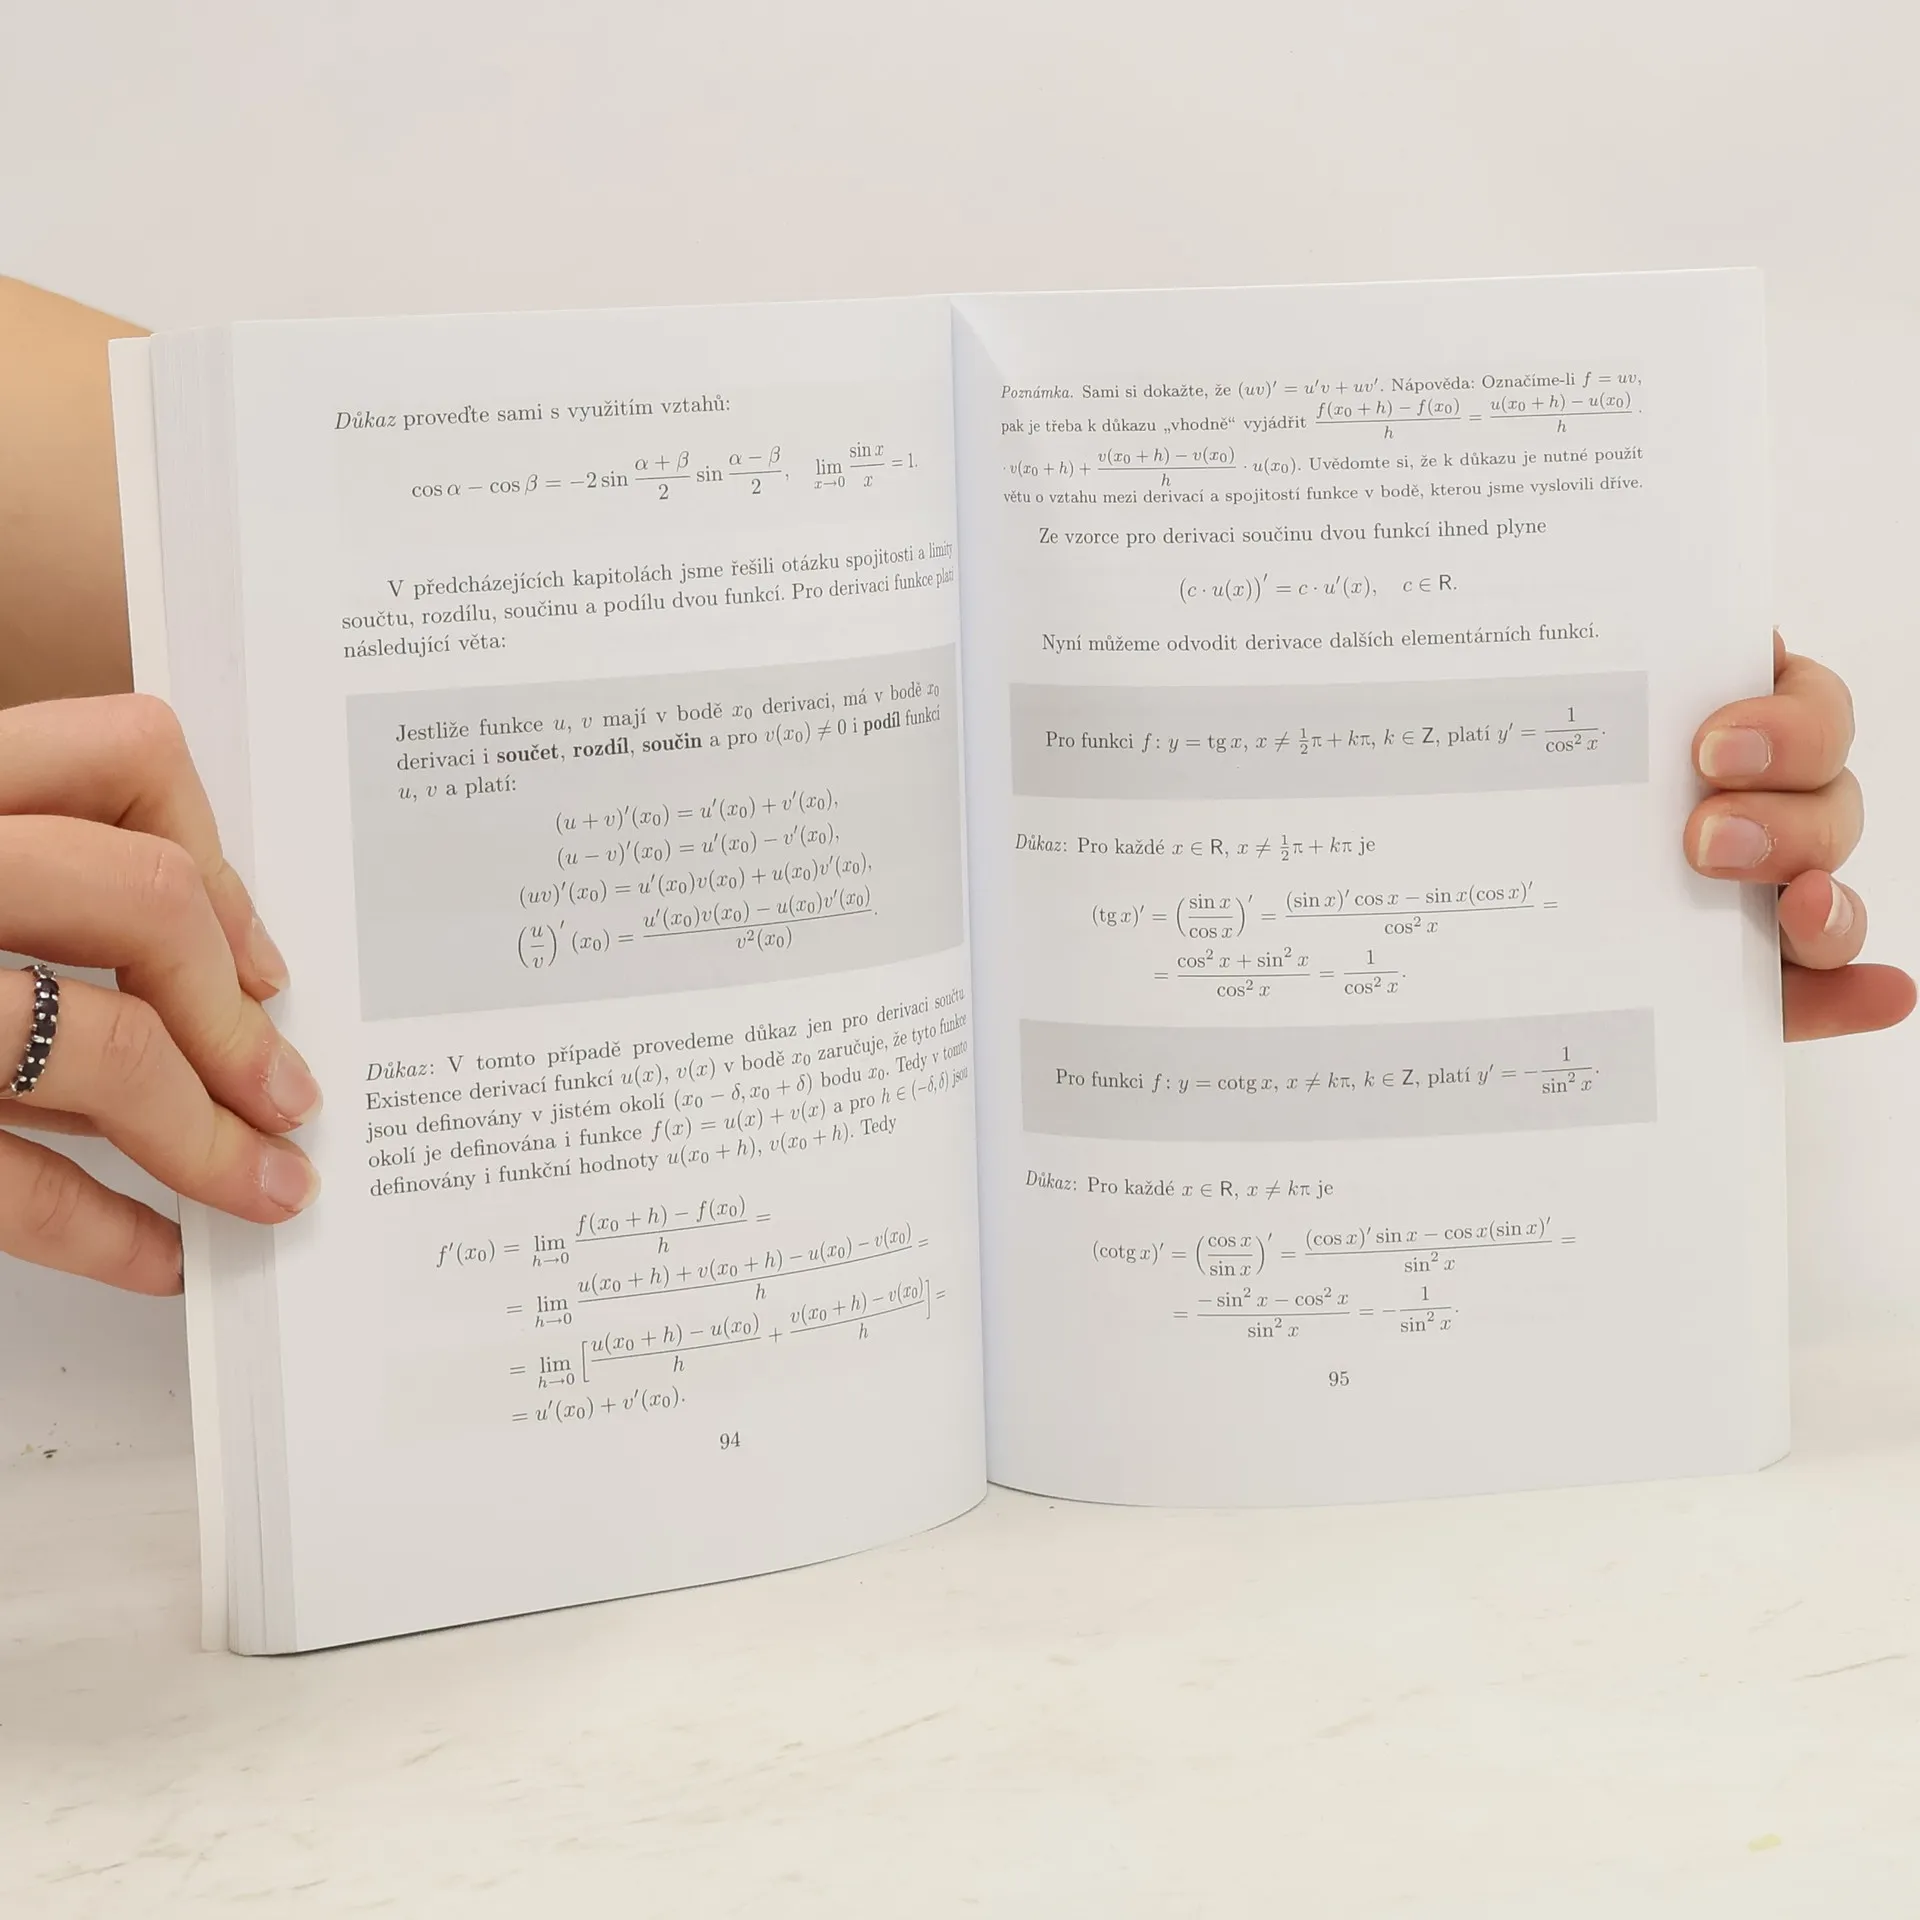 Důkaz proveďte sami s využitím vztahů:
cos α − cos β = −2 sin (α + β)/2 sin (α − β)/2, lim_{x→0} sin x/x = 1.
V předcházejících kapitolách jsme řešili otázku spojitosti a limity
součtu, rozdílu, součinu a podílu dvou funkcí. Pro derivaci funkce platí
následující věta:
Jestliže funkce u, v mají v bodě x₀ derivaci, má v bodě x₀
derivaci i součet, rozdíl, součin a pro v(x₀) ≠ 0 i podíl funkcí
u, v a platí:
(u + v)′(x₀) = u′(x₀) + v′(x₀),
(u − v)′(x₀) = u′(x₀) − v′(x₀),
(uv)′(x₀) = u′(x₀)v(x₀) + u(x₀)v′(x₀),
(u/v)′ (x₀) = (u′(x₀)v(x₀) − u(x₀)v′(x₀))/v²(x₀).
Důkaz: V tomto případě provedeme důkaz jen pro derivaci součtu
Existence derivací funkcí u(x), v(x) v bodě x₀ zaručuje, že tyto funkce
jsou definovány v jistém okolí (x₀ − δ, x₀ + δ) bodu x₀. Tedy v tomto
okolí je definována i funkce f(x) = u(x) + v(x) a pro h ∈ (−δ, δ) jsou
definovány i funkční hodnoty u(x₀ + h), v(x₀ + h). Tedy
f′(x₀) = lim_{h→0} (f(x₀ + h) − f(x₀))/h =
= lim_{h→0} (u(x₀ + h) + v(x₀ + h) − u(x₀) − v(x₀))/h =
= lim_{h→0} [(u(x₀ + h) − u(x₀))/h + (v(x₀ + h) − v(x₀))/h] =
= u′(x₀) + v′(x₀).
94
Poznámka. Sami si dokažte, že (uv)′ = u′v + uv′. Nápověda: Označíme-li f = uv,
pak je třeba k důkazu „vhodně“ vyjádřit (f(x₀ + h) − f(x₀))/h = (u(x₀ + h) − u(x₀))/h ·
· v(x₀ + h) + (v(x₀ + h) − v(x₀))/h · u(x₀). Uvědomte si, že k důkazu je nutné použít
větu o vztahu mezi derivací a spojitostí funkce v bodě, kterou jsme vyslovili dříve.
Ze vzorce pro derivaci součinu dvou funkcí ihned plyne
(c · u(x))′ = c · u′(x), c ∈ R.
Nyní můžeme odvodit derivace dalších elementárních funkcí.
Pro funkci f : y = tg x, x ≠ ½π + kπ, k ∈ Z, platí y′ = 1/cos² x.
Důkaz: Pro každé x ∈ R, x ≠ ½π + kπ je
(tg x)′ = (sin x/cos x)′ = ((sin x)′ cos x − sin x(cos x)′)/cos² x =
= (cos² x + sin² x)/cos² x = 1/cos² x.
Pro funkci f : y = cotg x, x ≠ kπ, k ∈ Z, platí y′ = −1/sin² x.
Důkaz: Pro každé x ∈ R, x ≠ kπ je
(cotg x)′ = (cos x/sin x)′ = ((cos x)′ sin x − cos x(sin x)′)/sin² x =
= (− sin² x − cos² x)/sin² x = −1/sin² x.
95